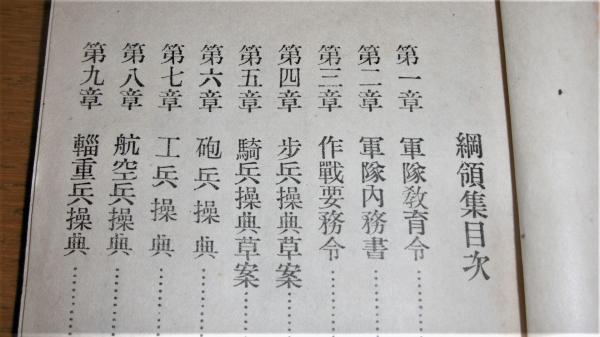 綱領集目次
第一章 軍隊敎育令………
第二章 軍隊內務書………
第三章 作戰要務令………
第四章 步兵操典草案……
第五章 騎兵操典草案……
第六章 砲兵操典………
第七章 工兵操典………
第八章 航空兵操典………
第九章 輜重兵操典………